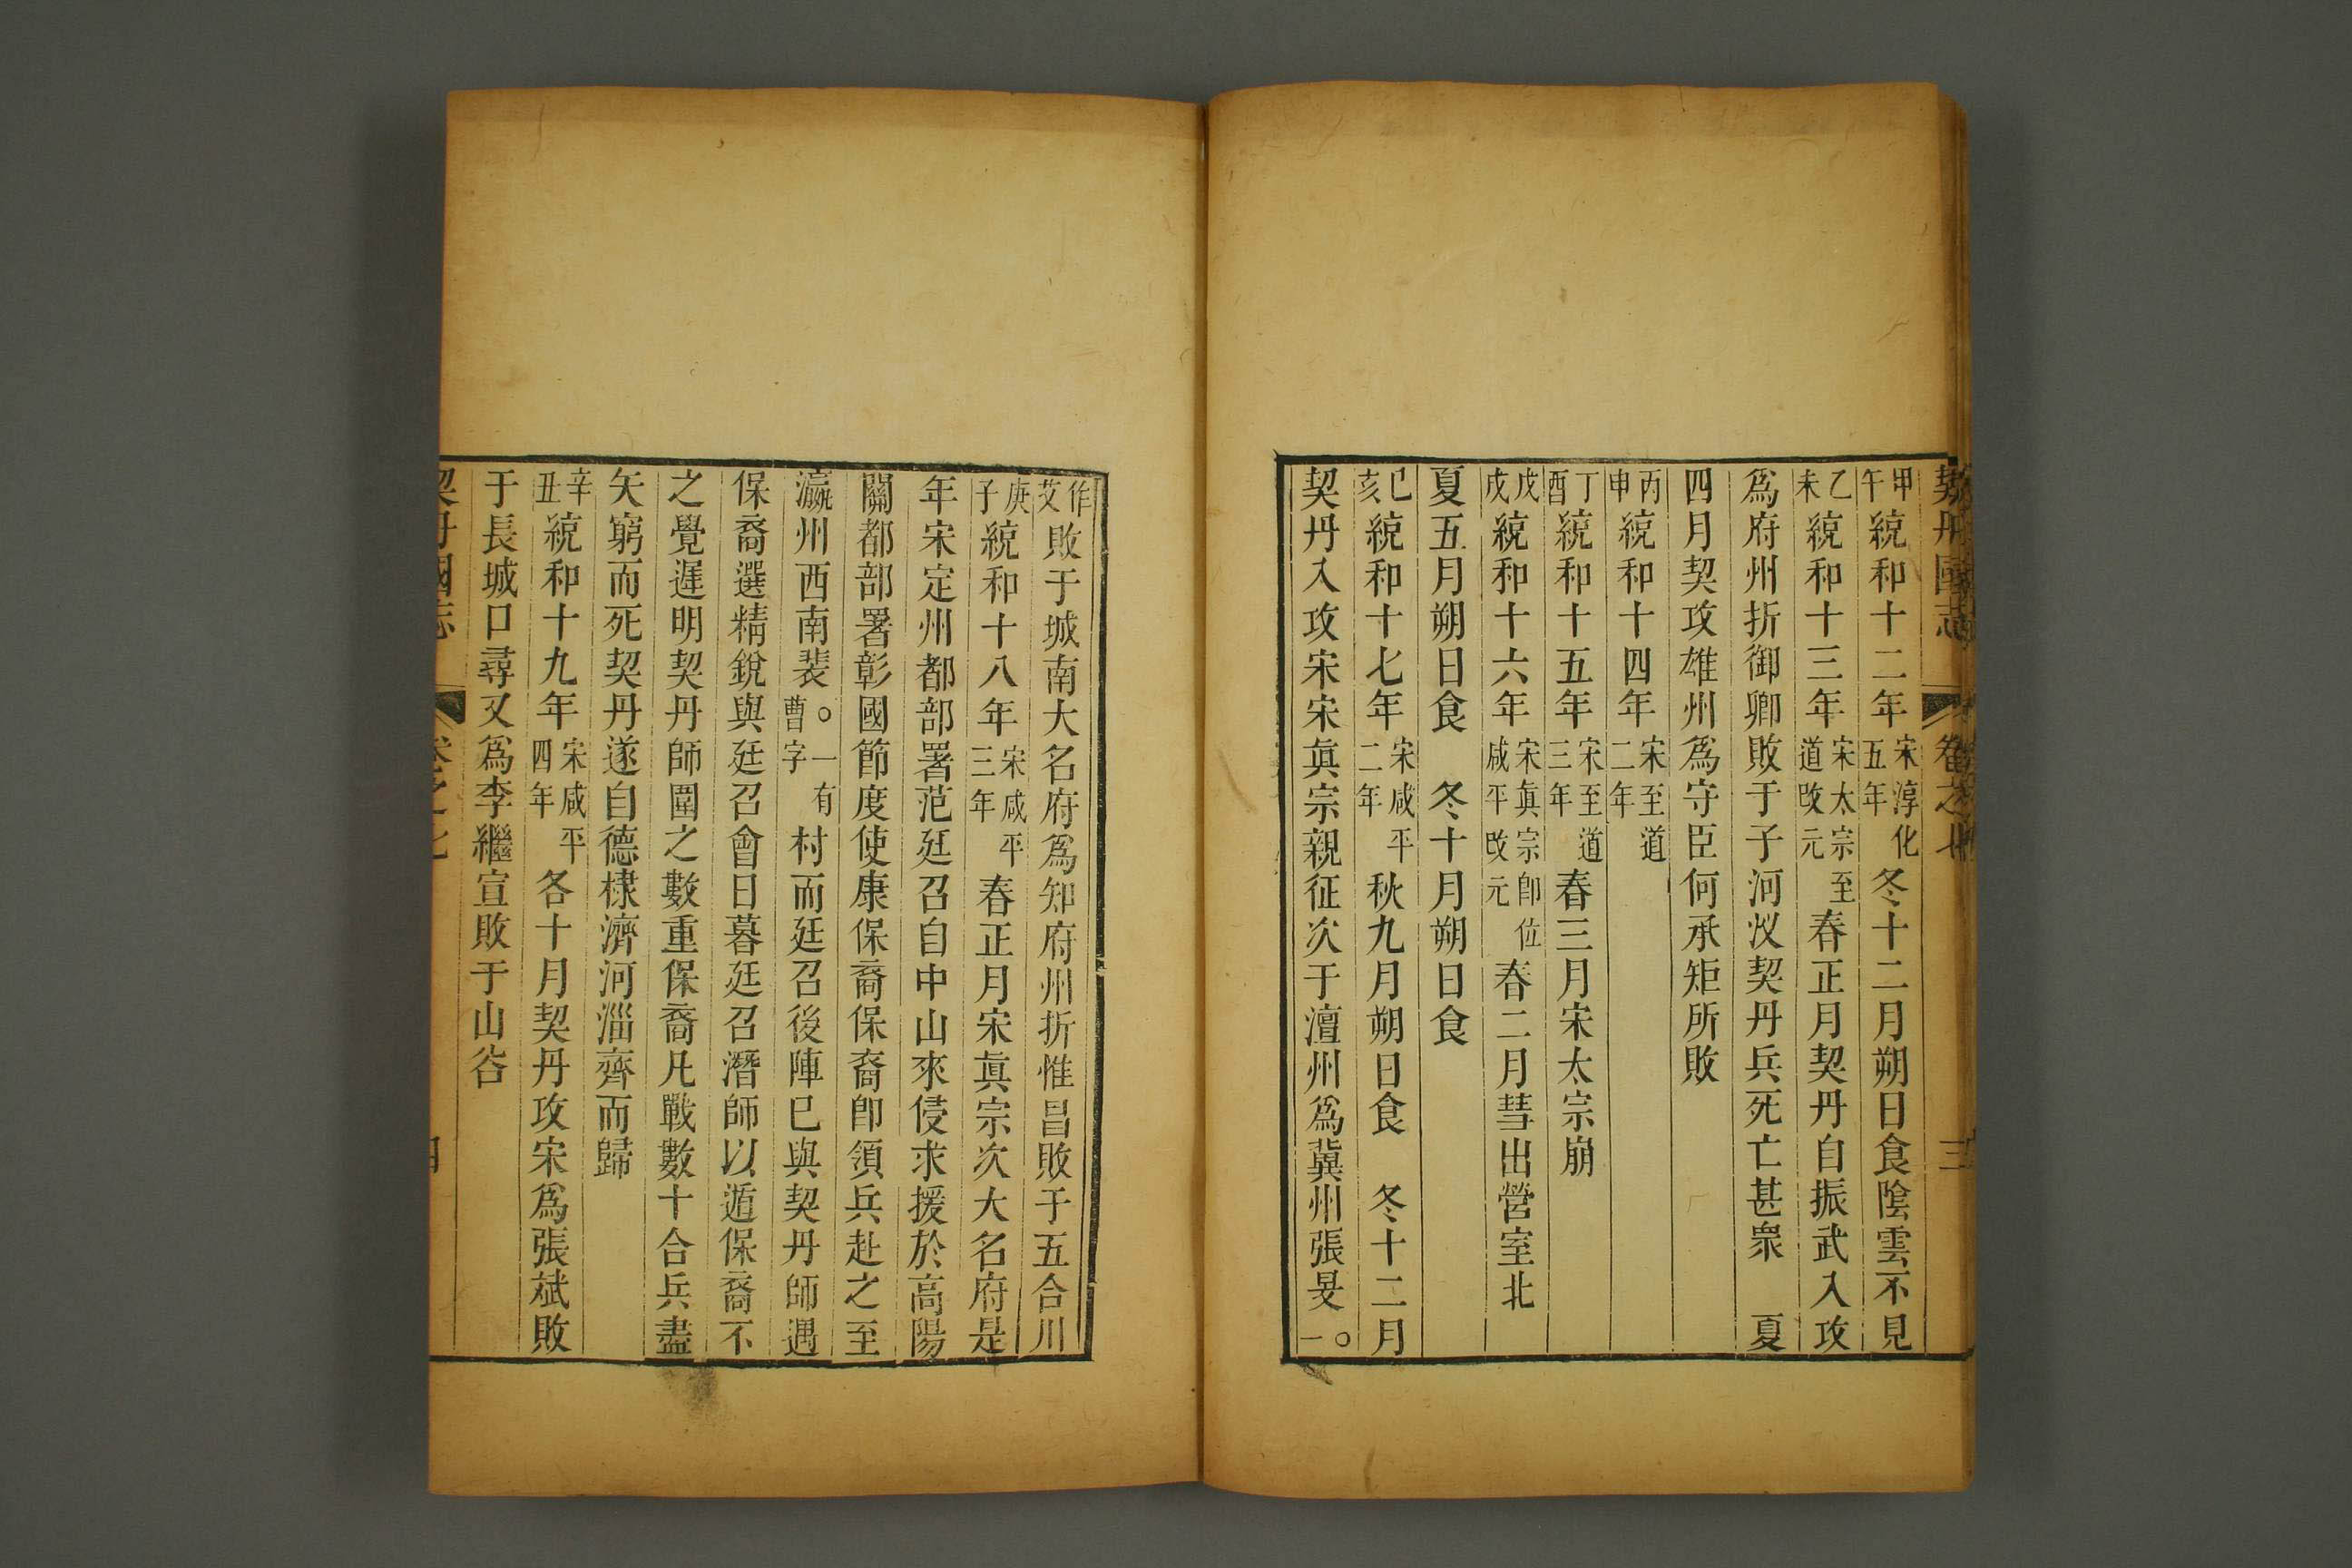 契丹國志 卷之七 三
甲午統和十二年宋淳化五年冬十二月朔日食陰雲不見
乙未統和十三年宋太宗至道改元春正月契丹自振武入攻
爲府州折御卿敗于子河汊契丹兵死亡甚衆 夏
四月契攻雄州爲守臣何承矩所敗
丙申統和十四年宋至道二年
丁酉統和十五年宋至道三年春三月宋太宗崩
戊戌統和十六年宋眞宗卽位咸平改元春二月彗出營室北
夏五月朔日食 冬十月朔日食
己亥統和十七年宋咸平二年秋九月朔日食 冬十二月
契丹入攻宋宋眞宗親征次于澶州爲冀州張旻○一
作艾敗于城南大名府爲知府州折惟昌敗于五合川
庚子統和十八年宋咸平三年春正月宋眞宗次大名府是
年宋定州都部署范廷召自中山來侵求援於高陽
關都部署彰國節度使康保裔保裔卽領兵赴之至
瀛州西南裴○一有曹字村而廷召後陣已與契丹師遇
保裔選精銳與廷召會日暮廷召潛師以遁保裔不
之覺遲明契丹師圍之數重保裔凡戰數十合兵盡
矢窮而死契丹遂自德棣濟河淄齊而歸
辛丑統和十九年宋咸平四年冬十月契丹攻宋爲張斌敗
于長城口尋又爲李繼宣敗于山谷
契丹國志 卷之七 四